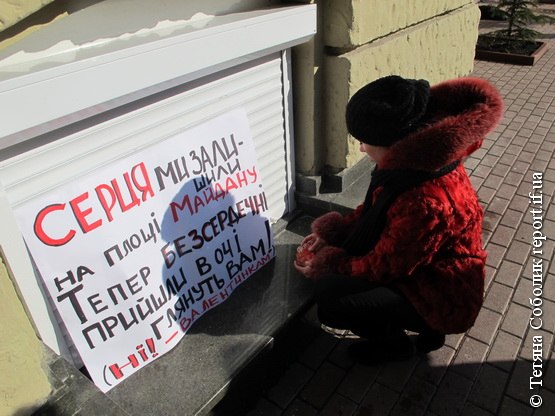 СЕРЦЯ МИ ЗАЛИ-
ШИЛИ
НА ПЛОЩІ МАЙДАНУ
ТЕПЕР БЕЗСЕРДЕЧНІ
ПРИЙШЛИ В ОЧІ
ГЛЯНУТЬ ВАМ!
(НІ! – ВАЛЕНТИНКАМ
© Тетяна Соболик report.if.ua